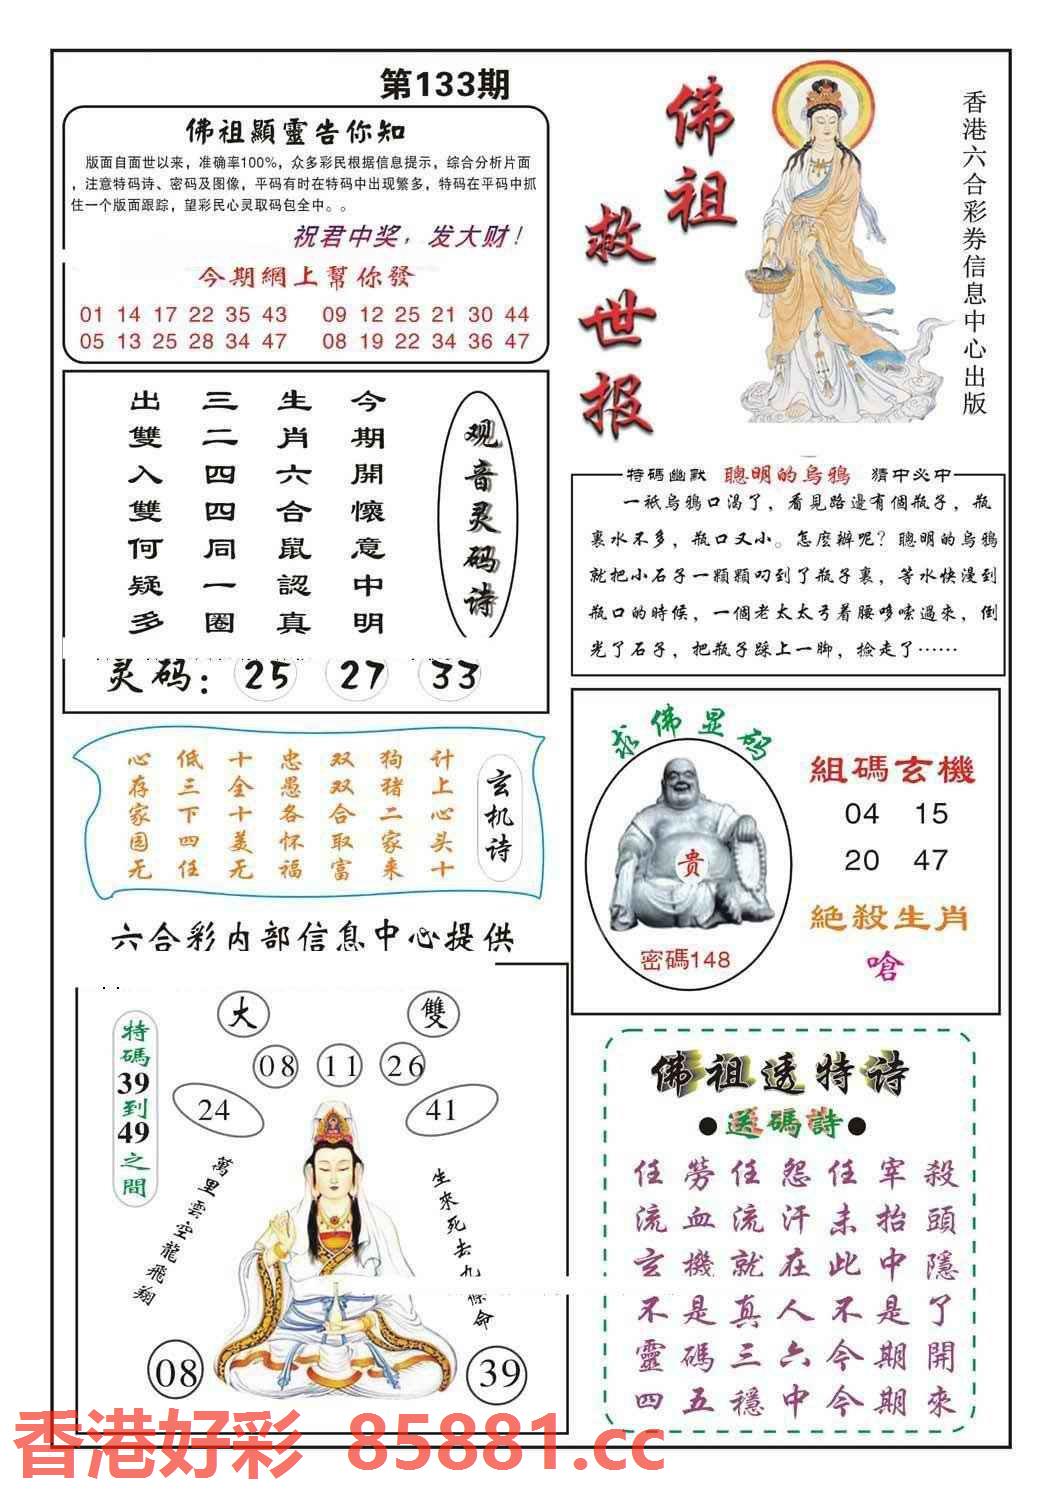 第133期
佛祖顯靈告你知
版面自面世以来，准确率100%，众多彩民根据信息提示，综合分析片面
，注意特码诗、密码及图像，平码有时在特码中出现繁多，特码在平码中抓
住一个版面跟踪，望彩民心灵取码包全中。。
祝君中奖，发大财！
今期網上幫你發
01 14 17 22 35 43 09 12 25 21 30 44
05 13 25 28 34 47 08 19 22 34 36 47
佛祖
救世报
香港六合彩券信息中心出版
观音灵码诗
今期開懷意中明
生肖六合鼠認真
三二四四同一圈
出雙入雙何疑多
灵码：25 27 33
特碼幽默 聰明的烏鴉 猜中必中
一衹烏鴉口渴了，看見路邊有個瓶子，瓶
裏水不多，瓶口又小。怎麽辦呢？聰明的烏鴉
就把小石子一顆顆叼到了瓶子裏，等水快漫到
瓶口的時候，一個老太太弓着腰哆嗦過來，倒
光了石子，把瓶子踩上一脚，撿走了……
玄机诗
计上心头十
狗猪二家来
双双合取富
忠愚各怀福
十全十美无
低三下四任
心存家园无
求佛显码
贵
密碼148
組碼玄機
04 15
20 47
絕殺生肖
嗆
六合彩内部信息中心提供
特碼39到49之間
大 雙
08 11 26
24 41
萬里雲空龍飛翔
生來死去九條命
08 39
佛祖透特诗
●送碼詩●
任勞任怨任宰殺
流血流汗未抬頭
玄機就在此中隱
不是真人不是了
靈碼三六今期開
四五穩中今期來
香港好彩 85881.cc